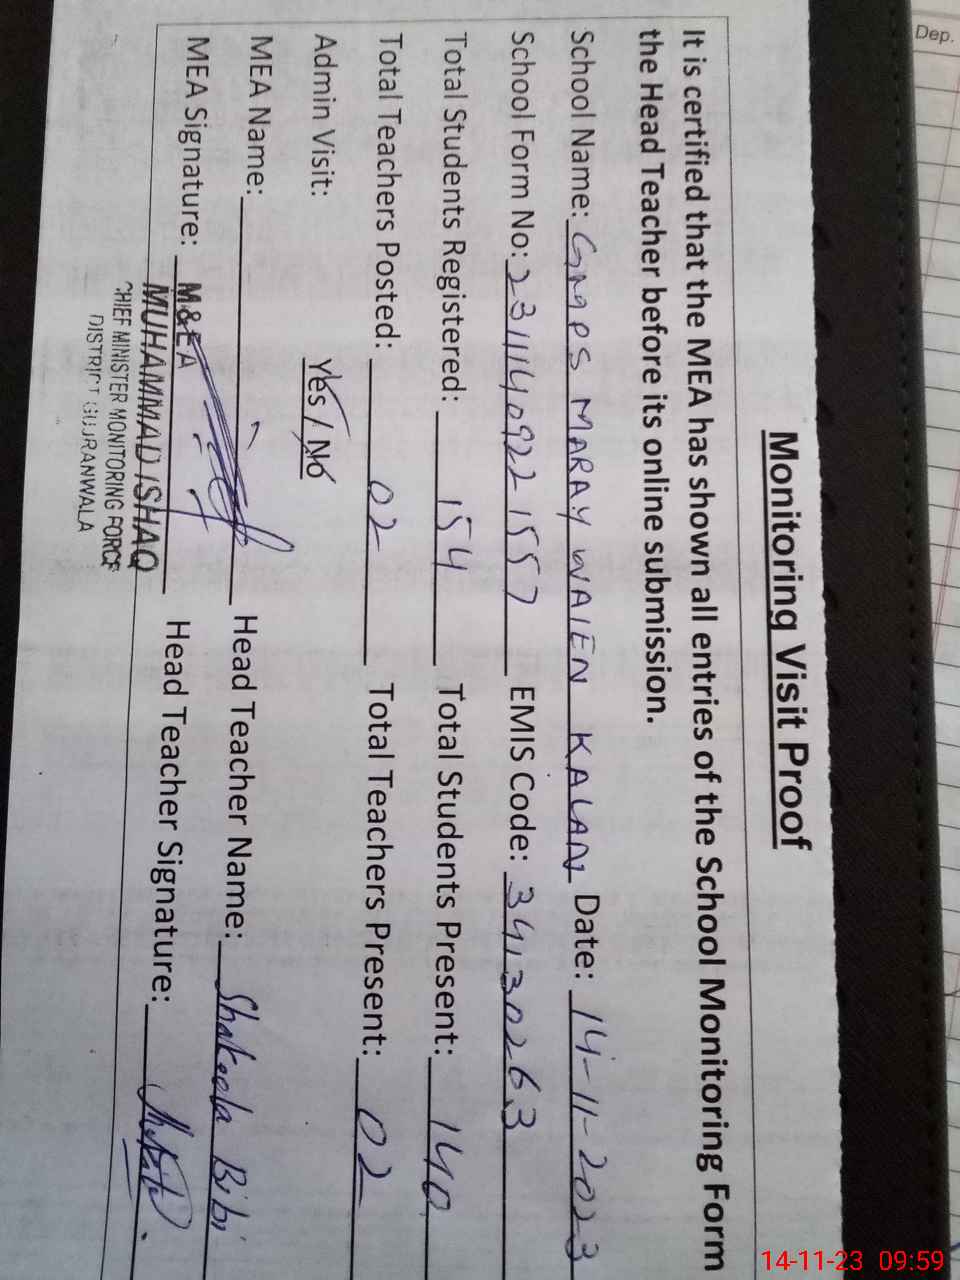 Monitoring Visit Proof
It is certified that the MEA has shown all entries of the School Monitoring Form
the Head Teacher before its online submission.
School Name: GMPS MARAY WAIEN KALAN Date: 14-11-2023
School Form No: 2311140922157 EMIS Code: 34130263
Total Students Registered: 154 Total Students Present: 140
Total Teachers Posted: 02 Total Teachers Present: 02
Admin Visit: Yes / No
MEA Name: Head Teacher Name: Shakeela Bibi
MEA Signature: Head Teacher Signature:
M&EA
MUHAMMAD ISHAQ
CHIEF MINISTER MONITORING FORCE
DISTRICT GUJRANWALA
Dep.
14-11-23 09:59